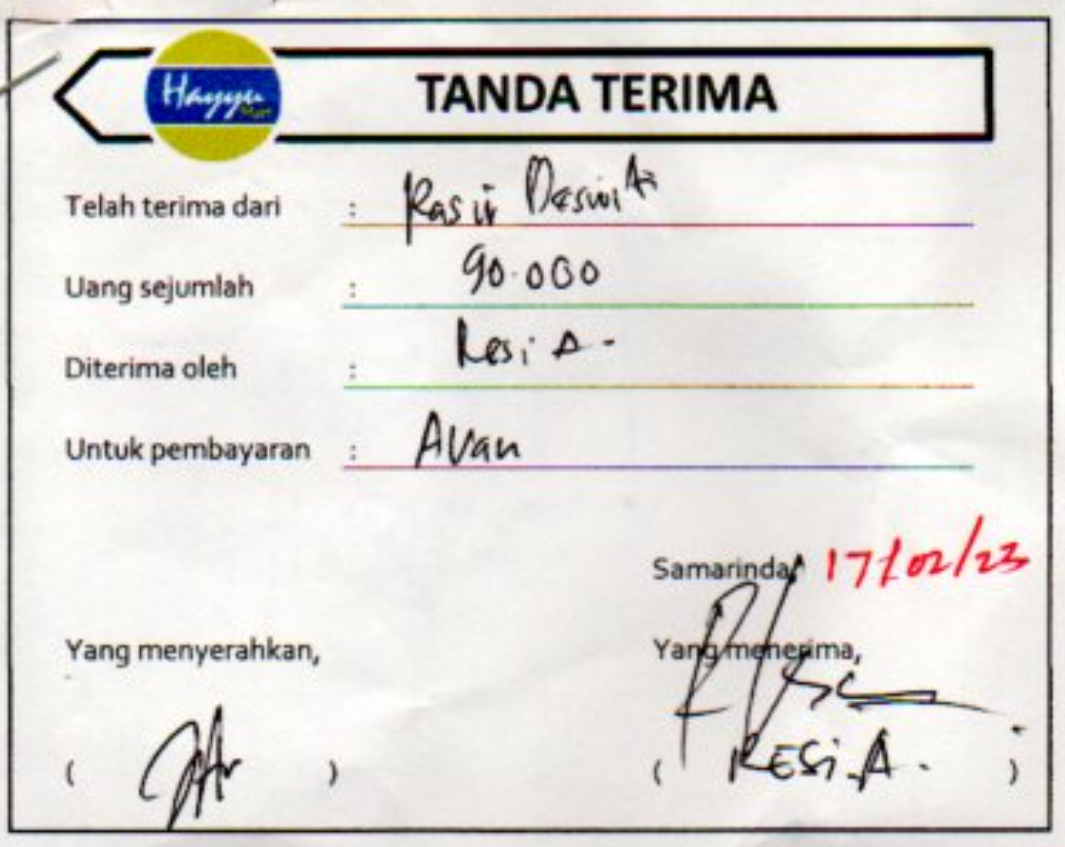 Hayyu
Mart
TANDA TERIMA
Telah terima dari : Kasir Deswita
Uang sejumlah : 90.000
Diterima oleh : Resi A.
Untuk pembayaran : Avan
Samarinda, 17/02/23
Yang menyerahkan, Yang menerima,
( ) ( RESi.A. )